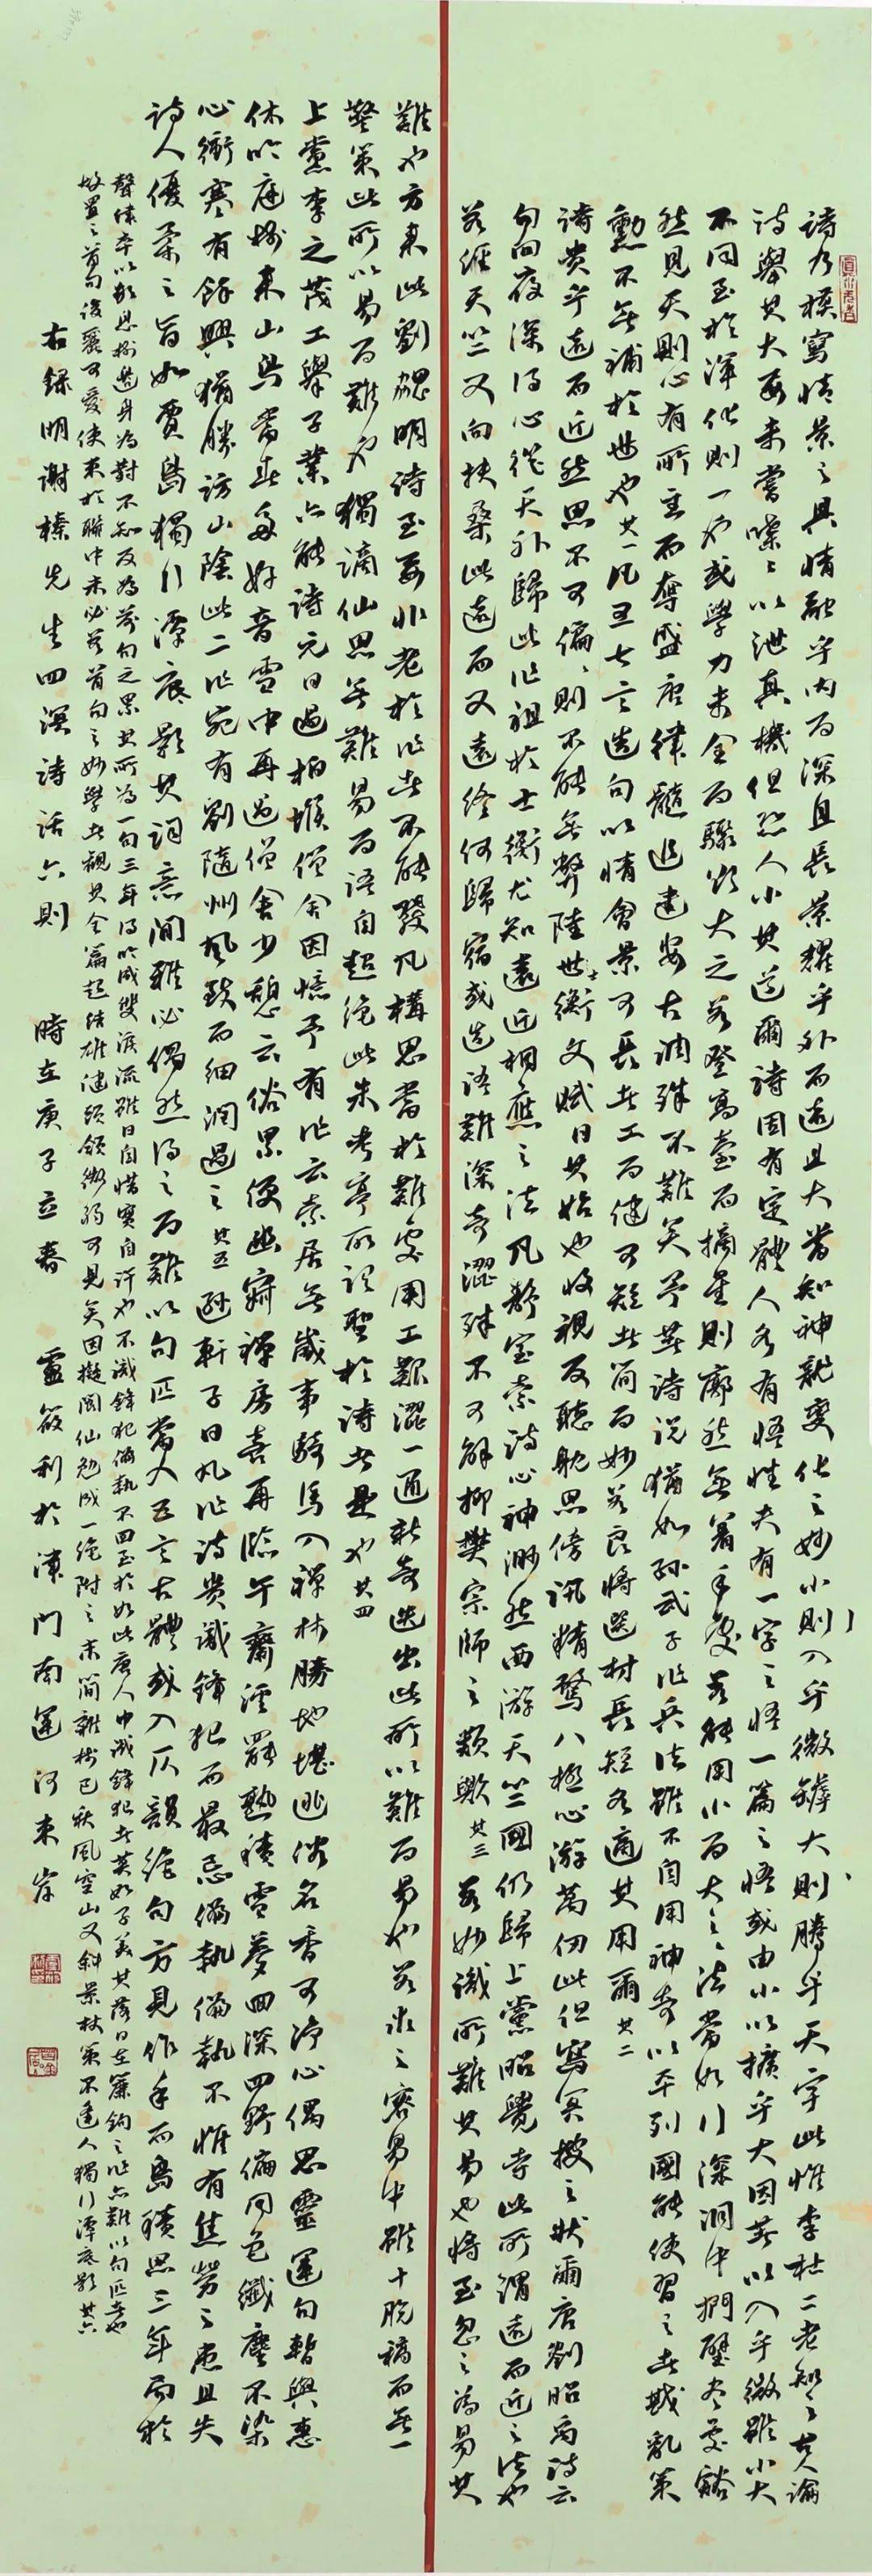 詩乃模寫情景之具情融乎內而深且長景耀乎外而遠且大當知神龍變化之妙小則入乎微罅大則騰乎天宇此惟李杜二老知之古人論
詩舉其大要未嘗喋喋以泄真機但恐人小其道爾詩固有定體人各有悟性夫有一字之悟一篇之悟或由小以擴乎大因著以入乎微雖小大
不同至於渾化則一也或學力未全而驟欲大之若登高臺而摘星則廓然無着手處若能用小而大之之法當如行深洞中捫壁盡處豁
然見天則心有所主而奪盛唐律髓追建安古調殊不難矣予著詩說猶如孫武子作兵法雖不自用神奇以平列國能使習之者戡亂策
勳不無補於世也其一凡丑七言造句以情會景可長者工而健可短者簡而妙若良將選材長短各適其用爾其二
詩貴乎遠而近然思不可偏偏則不能無弊陸士衡文賦曰其始也收視反聽耽思傍訊精騖八極心游萬仞此但寫冥搜之狀爾唐劉昭禹詩云
句向夜深得心從天外歸此作祖於士衡尤知遠近相應之法凡靜室索詩心神渺然西游天竺國仍歸上黨昭覺寺此所謂遠而近之法也
若經天竺又向扶桑此遠而又遠終何歸宿或造語艱深奇澀殊不可解抑樊宗師之類歟其三若妙識所難其易也將至忽之為易其
難也方來此劉勰明詩至要非老於作者不能發凡構思當於難處用工艱澀一通新奇迭出此所以難而易也若求之容易中雖十脫稿而無一
警策此所以易而難也獨謫仙思無難易而語自超絕此朱考亭所謂聖於詩者是也其四
上黨李之茂工舉子業亦能詩元日過柏堠僧舍因憶予有作云索居無歲事騎馬入禪林勝地堪逃俗名香可淨心偶思靈運句暫與惠
休吟庭樹東山鳥當春多好音雪中再過僧舍少憩云俗累便幽寂禪房喜再臨午齋經罷熟積雪夢回深四野偏同色纖塵不染
心衝寒有餘興猶勝訪山陰此二作宛有劉隨州風致而細潤過之其五遜軒子曰凡作詩貴識鋒犯而最忌偏執偏執不惟有焦勞之患且失
詩人優柔之旨如賈島獨行潭底影其詞意閒雅必偶然得之而難以句匹當入五言古體或入仄韻絕句方見作手而島積思三年局於
聲律卒以數息樹邊身為對不知反為前句之累其所為一句三年得吟成雙淚流雖曰自惜實自許也不識鋒犯偏執不回至於如此唐人中識鋒犯者莫如子美其落日在簾鉤之作亦難以句匹者也
故置之首句後麗可愛使束於聯中未必若首句之妙學者觀其全篇起結雄健頸頷微弱可見矣因擬閬仙勉成一絕附之末簡雜樹已秋風空山又斜景杖策不逢人獨行潭底影其六
右錄明謝榛先生四溟詩話六則　時在庚子立春　盧筱利於津門南運河東岸